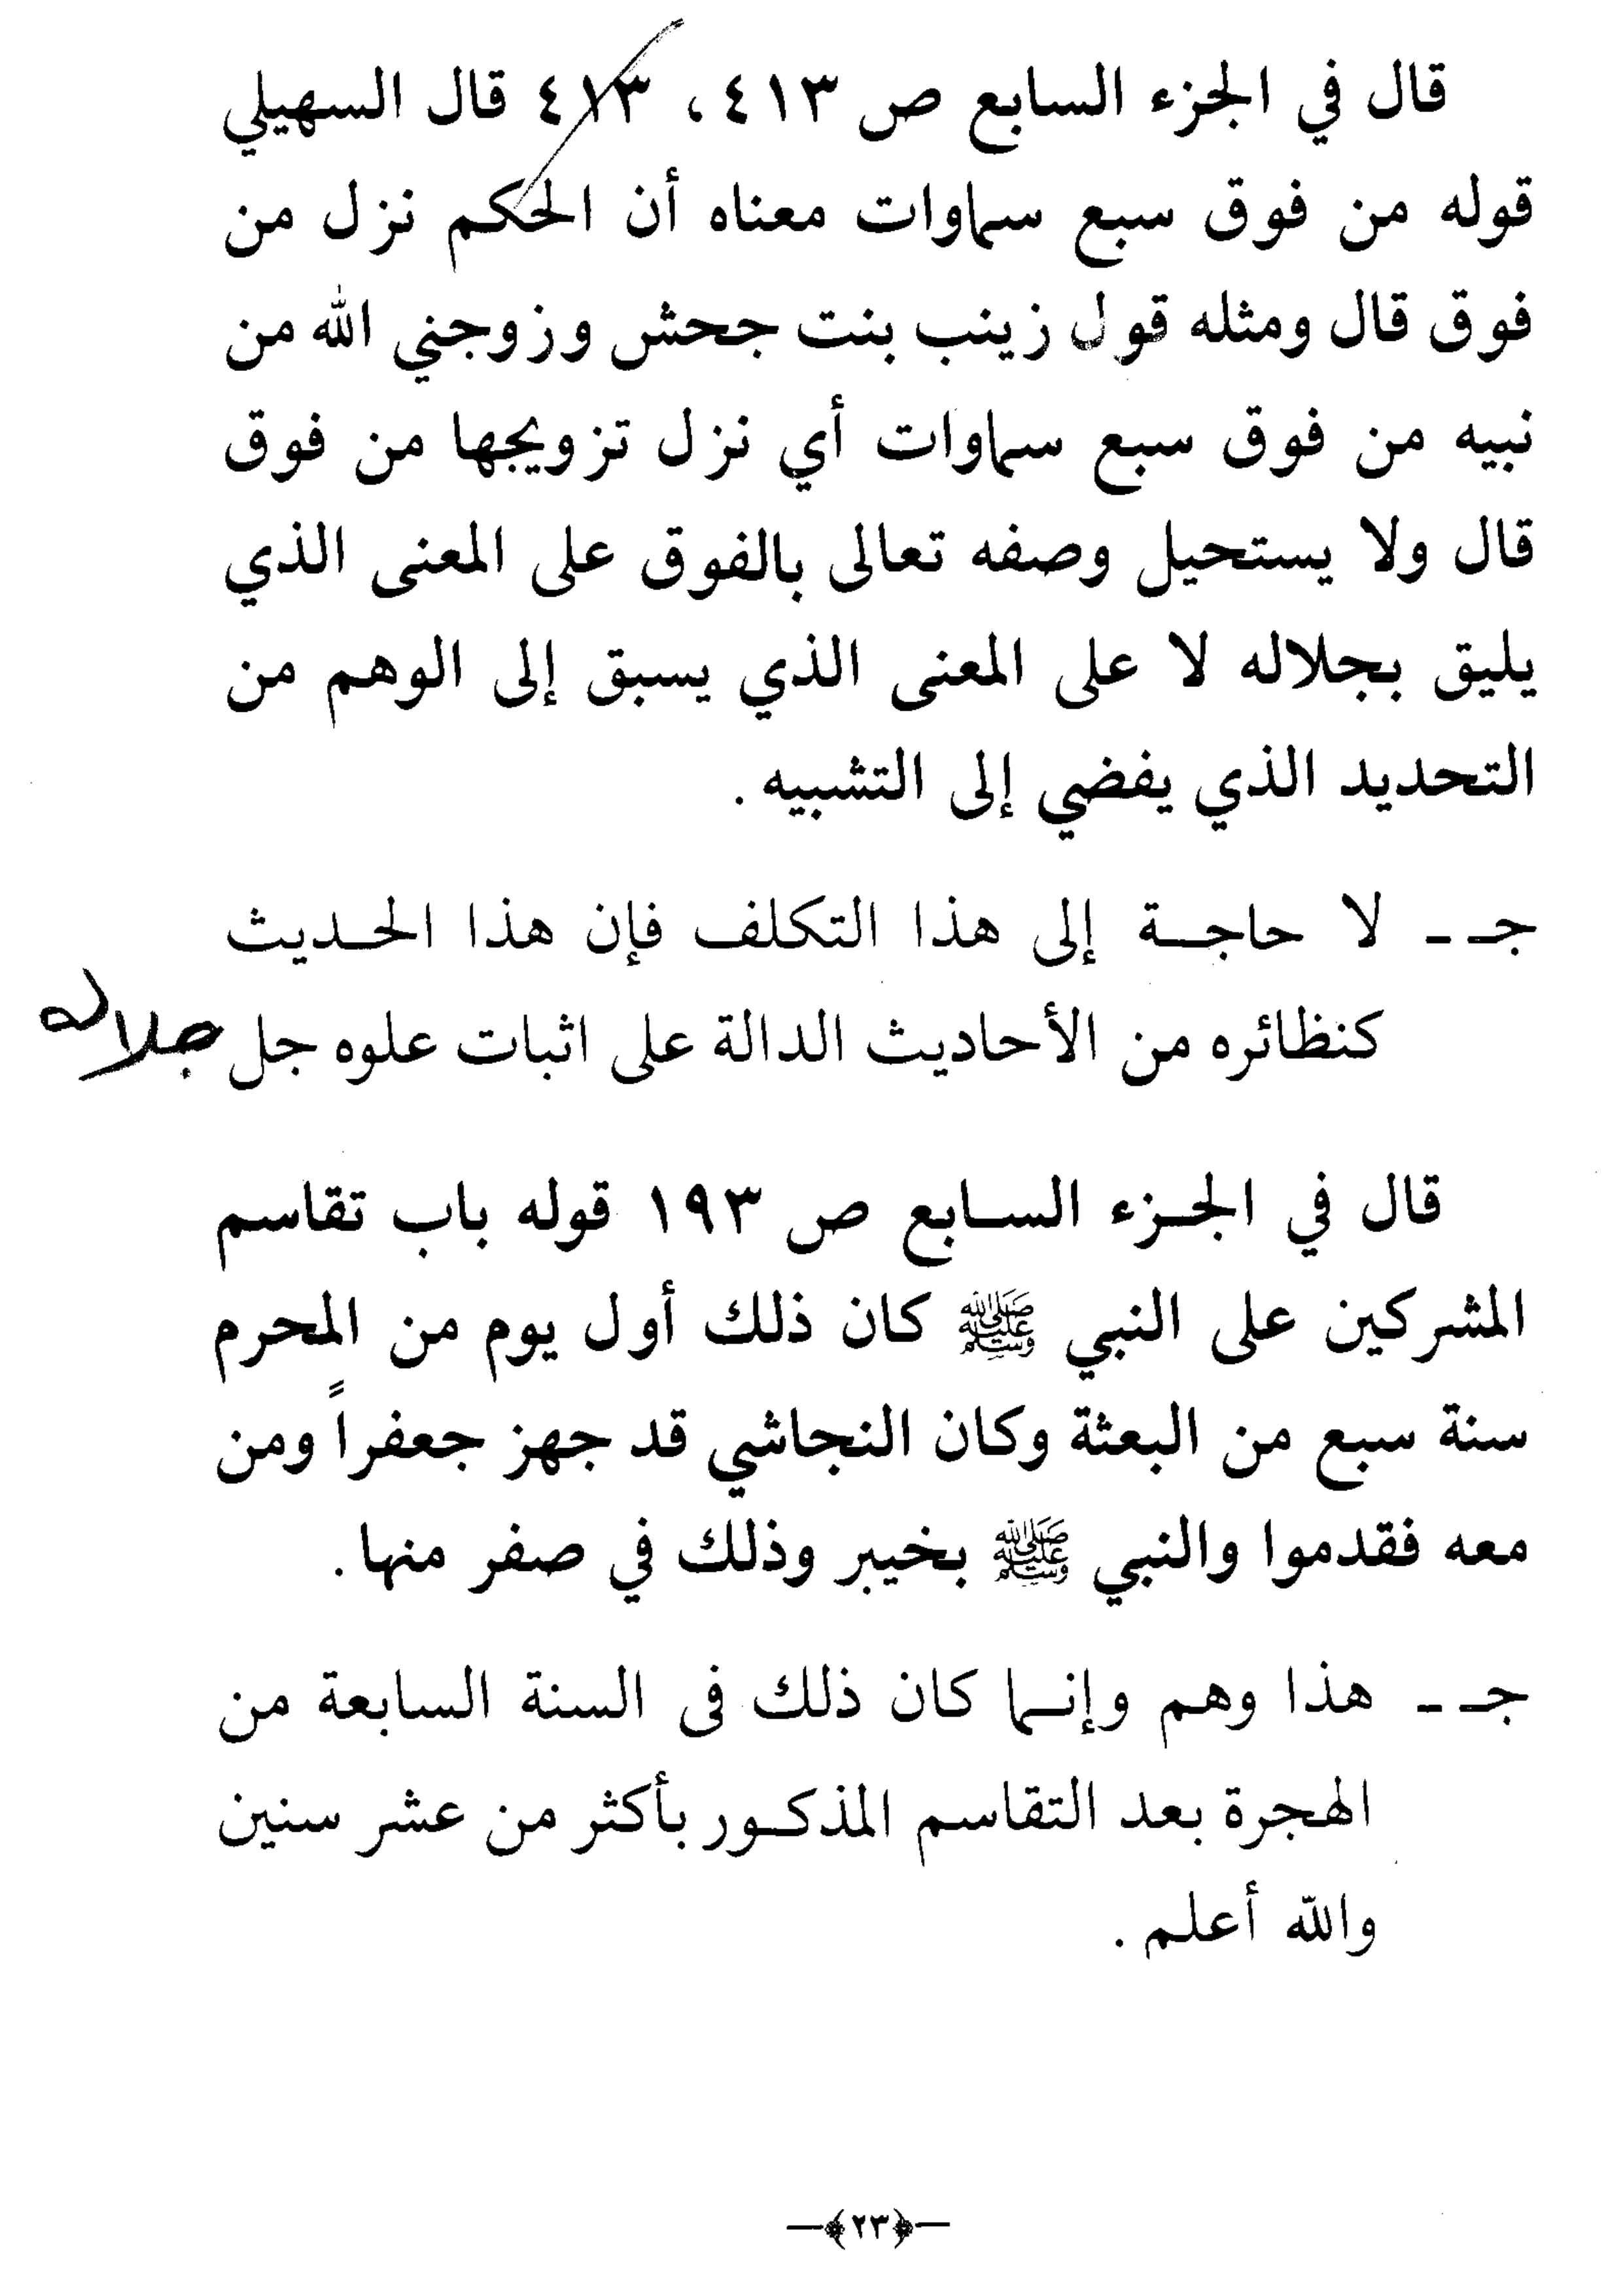 قال في الجزء السابع ص ٤١٣ ، ٤١٣ قال السهيلي
قوله من فوق سبع سماوات معناه أن الحكم نزل من
فوق قال ومثله قول زينب بنت جحش وزوجني الله من
نبيه من فوق سبع سماوات أي نزل تزويجها من فوق
قال ولا يستحيل وصفه تعالى بالفوق على المعنى الذي
يليق بجلاله لا على المعنى الذي يسبق إلى الوهم من
التحديد الذي يفضي إلى التشبيه .
جـ ـ لا حاجة إلى هذا التكلف فإن هذا الحديث
كنظائره من الأحاديث الدالة على اثبات علوه جل جلاله
قال في الجزء السابع ص ١٩٣ قوله باب تقاسم
المشركين على النبي ﷺ كان ذلك أول يوم من المحرم
سنة سبع من البعثة وكان النجاشي قد جهز جعفراً ومن
معه فقدموا والنبي ﷺ بخيبر وذلك في صفر منها .
جـ ـ هذا وهم وإنما كان ذلك فى السنة السابعة من
الهجرة بعد التقاسم المذكور بأكثر من عشر سنين
والله أعلم .
—﴿٢٣﴾—